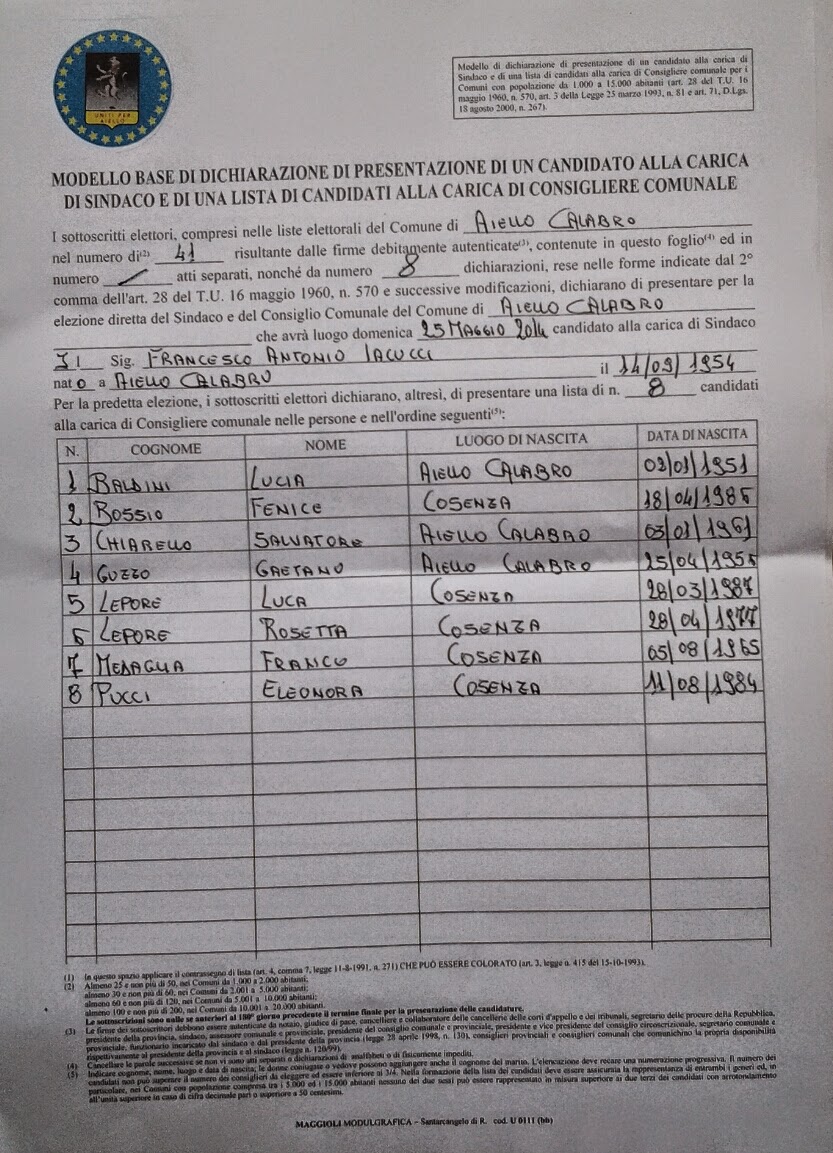 UNITI PER
AIELLO
Modello di dichiarazione di presentazione di un candidato alla carica di
Sindaco e di una lista di candidati alla carica di Consigliere comunale per i
Comuni con popolazione da 1.000 a 15.000 abitanti (art. 28 del T.U. 16
maggio 1960, n. 570, art. 3 della Legge 25 marzo 1993, n. 81 e art. 71, D.Lgs.
18 agosto 2000, n. 267).
MODELLO BASE DI DICHIARAZIONE DI PRESENTAZIONE DI UN CANDIDATO ALLA CARICA
DI SINDACO E DI UNA LISTA DI CANDIDATI ALLA CARICA DI CONSIGLIERE COMUNALE
I sottoscritti elettori, compresi nelle liste elettorali del Comune di AIELLO CALABRO
nel numero di(2) 41 risultante dalle firme debitamente autenticate(3), contenute in questo foglio(4) ed in
numero / atti separati, nonché da numero 8 dichiarazioni, rese nelle forme indicate dal 2°
comma dell'art. 28 del T.U. 16 maggio 1960, n. 570 e successive modificazioni, dichiarano di presentare per la
elezione diretta del Sindaco e del Consiglio Comunale del Comune di AIELLO CALABRO
che avrà luogo domenica 25 MAGGIO 2014 candidato alla carica di Sindaco
Il Sig. FRANCESCO ANTONIO IACUCCI
nato a AIELLO CALABRO il 14/09/1954
Per la predetta elezione, i sottoscritti elettori dichiarano, altresì, di presentare una lista di n. 8 candidati
alla carica di Consigliere comunale nelle persone e nell'ordine seguenti(5):
N. COGNOME NOME LUOGO DI NASCITA DATA DI NASCITA
1 BALDINI LUCIA AIELLO CALABRO
2 BOSSIO FENICE COSENZA
3 CHIARELLO SALVATORE AIELLO CALABRO
4 GUZZO GAETANO AIELLO CALABRO
5 LEPORE LUCA COSENZA 28/03/1987
6 LEPORE ROSETTA COSENZA 28/04/1977
7 MEDAGLIA FRANCO COSENZA 05/08/1965
8 PUCCI ELEONORA COSENZA 11/08/1984
(1) In questo spazio applicare il contrassegno di lista (art. 4, comma 7, legge 11-8-1991, n. 271) CHE PUÒ ESSERE COLORATO (art. 3, legge n. 415 del 15-10-1993).
(2) Almeno 25 e non più di 50, nei Comuni da 1.000 a 2.000 abitanti;
almeno 30 e non più di 60, nei Comuni da 2.001 a 5.000 abitanti;
almeno 60 e non più di 120, nei Comuni da 5.001 a 10.000 abitanti;
almeno 100 e non più di 200, nei Comuni da 10.001 a 20.000 abitanti.
Le sottoscrizioni sono nulle se anteriori al 180° giorno precedente il termine finale per la presentazione delle candidature.
(3) Le firme dei sottoscrittori debbono essere autenticate da notaio, giudice di pace, cancelliere e collaboratore delle cancellerie delle corti d'appello e dei tribunali, segretario delle procure della Repubblica,
presidente della provincia, sindaco, assessore comunale e provinciale, presidente del consiglio comunale e provinciale, presidente e vice presidente del consiglio circoscrizionale, segretario comunale e
provinciale, funzionario incaricato dal sindaco e dal presidente della provincia (legge 28 aprile 1998, n. 130), consiglieri provinciali e consiglieri comunali che comunichino la propria disponibilità
rispettivamente al presidente della provincia e al sindaco (legge n. 120/99).
(4) Cancellare le parole successive se non vi sono atti separati o dichiarazioni di analfabeti o di fisicamente impediti.
(5) Indicare cognome, nome, luogo e data di nascita; le donne coniugate o vedove possono aggiungere anche il cognome del marito. L'elencazione deve recare una numerazione progressiva. Il numero dei
candidati non può superare il numero dei consiglieri da eleggere ed essere inferiore ai 3/4. Nella formazione della lista dei candidati deve essere assicurata la rappresentanza di entrambi i generi ed, in
particolare, nei Comuni con popolazione compresa tra i 5.000 ed i 15.000 abitanti nessuno dei due sessi può essere rappresentato in misura superiore ai due terzi dei candidati con arrotondamento
all'unità superiore in caso di cifra decimale pari o superiore a 50 centesimi.
MAGGIOLI MODULGRAFICA – Santarcangelo di R. cod. U 0111 (bh)